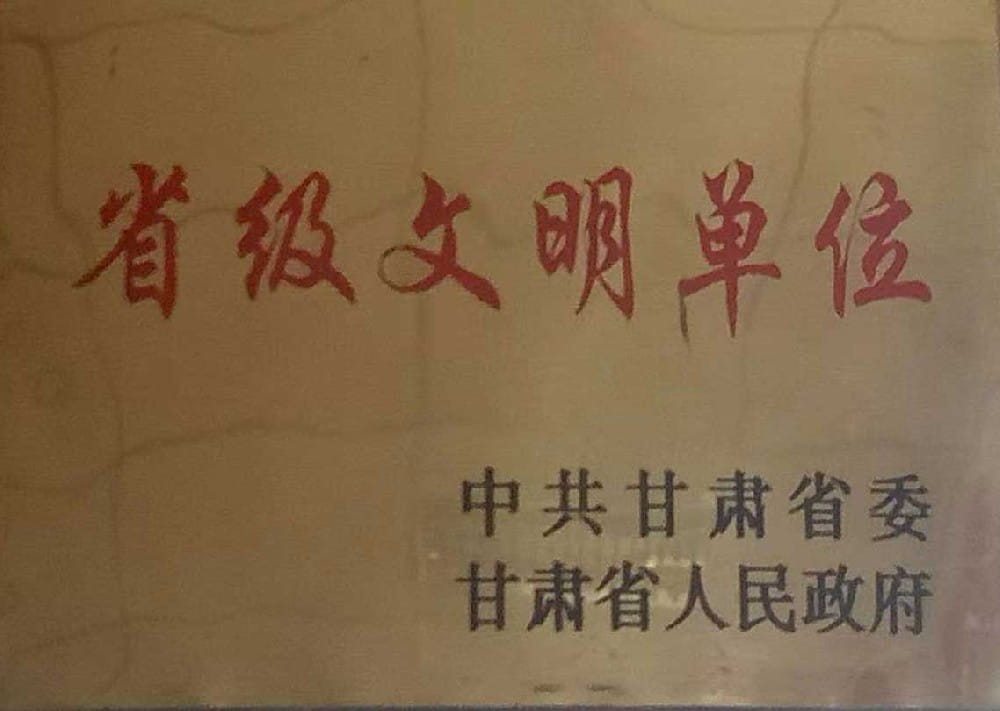 省级文明单位
中共甘肃省委
甘肃省人民政府